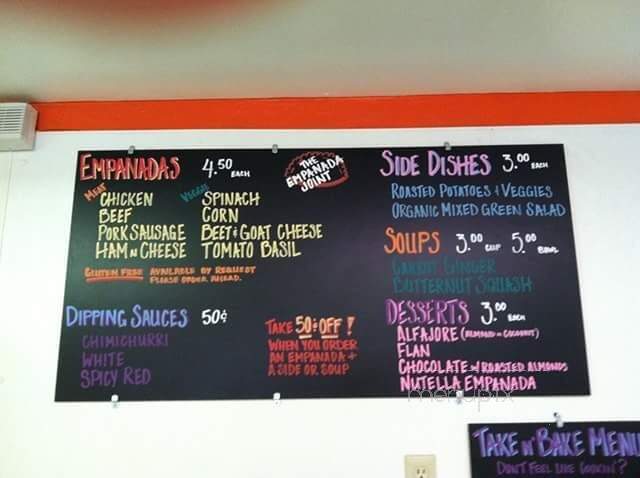 EMPANADAS 4.50 EACH
THE EMPANADA JOINT
MEAT
CHICKEN
BEEF
PORK SAUSAGE
HAM N CHEESE
VEGGIE
SPINACH
CORN
BEET + GOAT CHEESE
TOMATO BASIL
GLUTEN FREE AVAILABLE BY REQUEST
PLEASE ORDER AHEAD.
DIPPING SAUCES 50¢
CHIMICHURRI
WHITE
SPICY RED
TAKE 50¢ OFF!
WHEN YOU ORDER
AN EMPANADA +
A SIDE OR SOUP
SIDE DISHES 3.00 EACH
ROASTED POTATOES + VEGGIES
ORGANIC MIXED GREEN SALAD
SOUPS 3.00 CUP 5.00 BOWL
CARROT GINGER
BUTTERNUT SQUASH
DESSERTS 3.00 EACH
ALFAJORE (ALMOND OR COCONUT)
FLAN
CHOCOLATE w/ ROASTED ALMONDS
NUTELLA EMPANADA
menupix
TAKE N' BAKE MENU
DON'T FEEL LIKE COOKIN'?